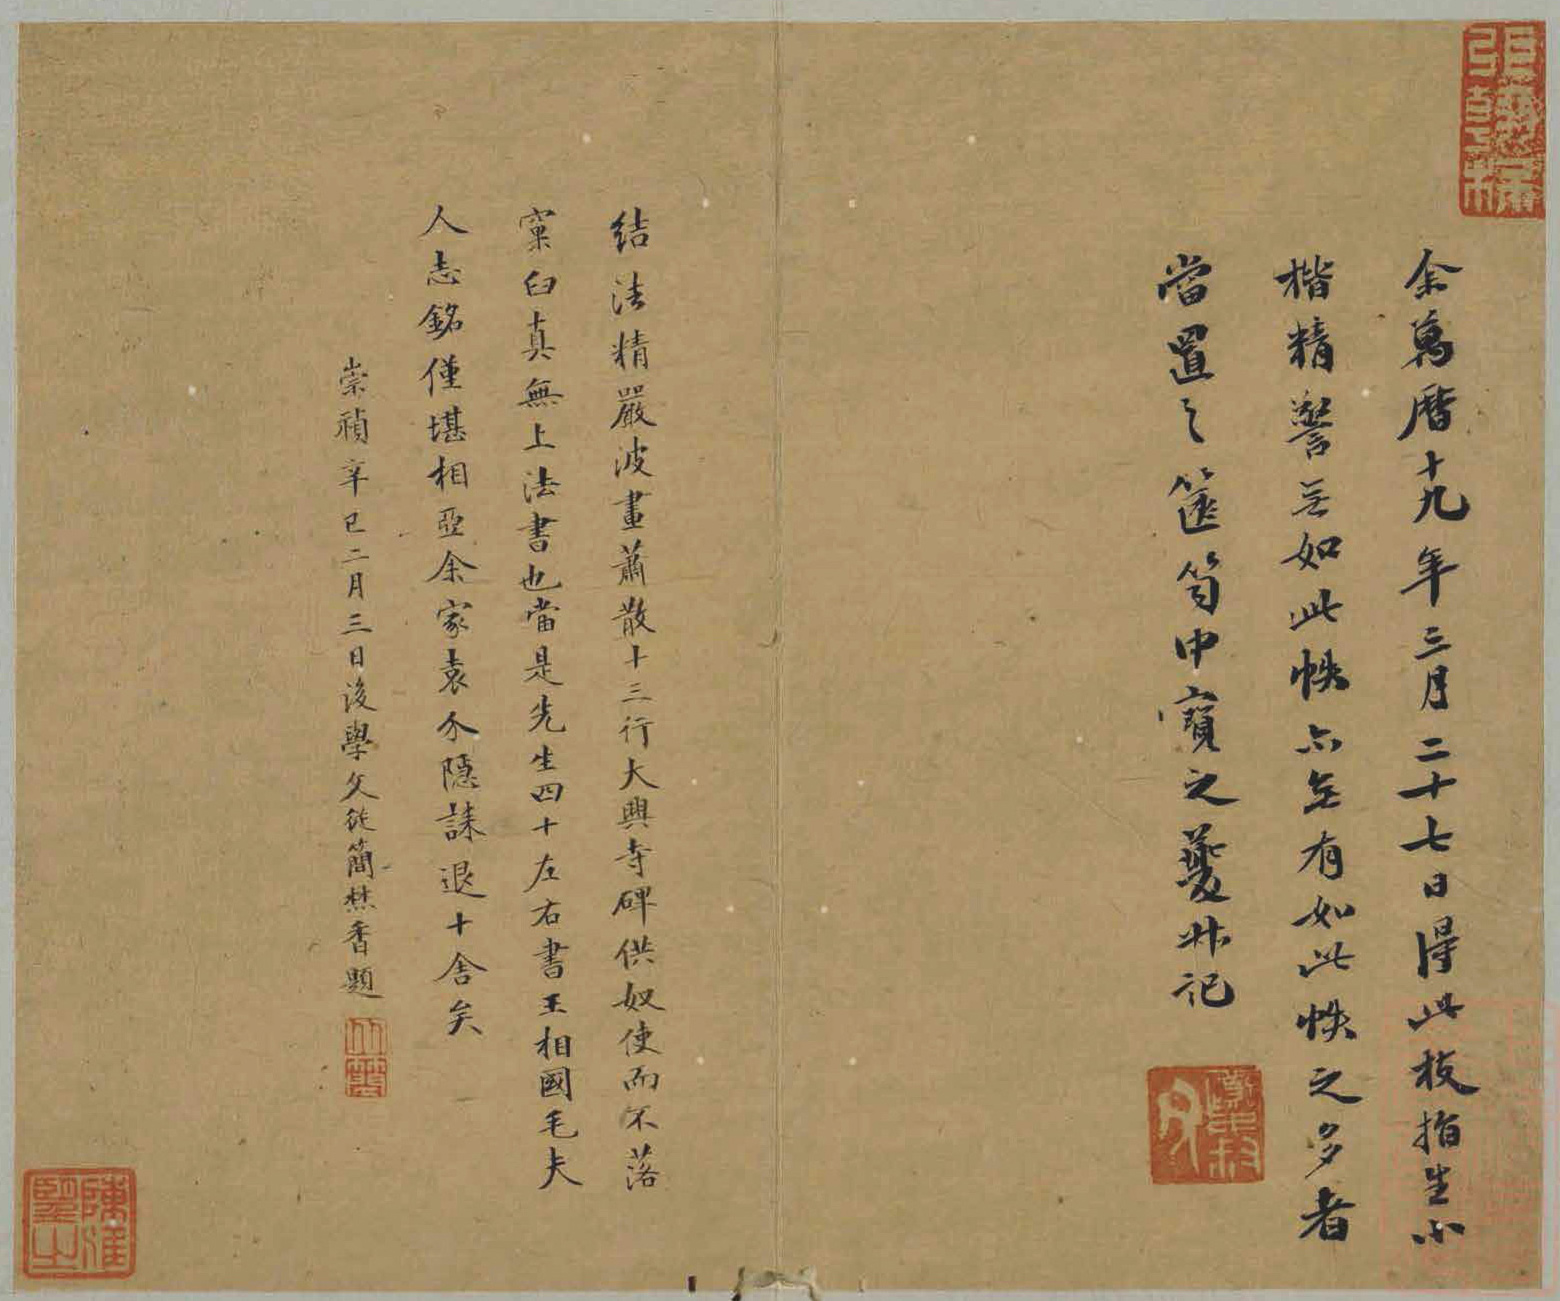 余萬曆十九年三月二十七日得此枝指生小
楷精謦无如此帙亦无有如此帙之多者
當置之篋笥中寶之夔叔記
結法精嚴波畫蕭散十三行大興寺碑供奴使而不落
窠臼真無上法書也當是先生四十左右書王相國毛夫
人志銘僅堪相亞余家袁介隱誄退十舍矣
崇禎辛巳二月三日後學文從簡焚香題
陳淮
鑒之